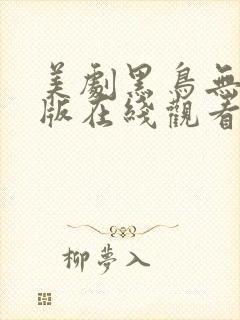 美劇黑鳥無
版在綫觀看
柳夢入